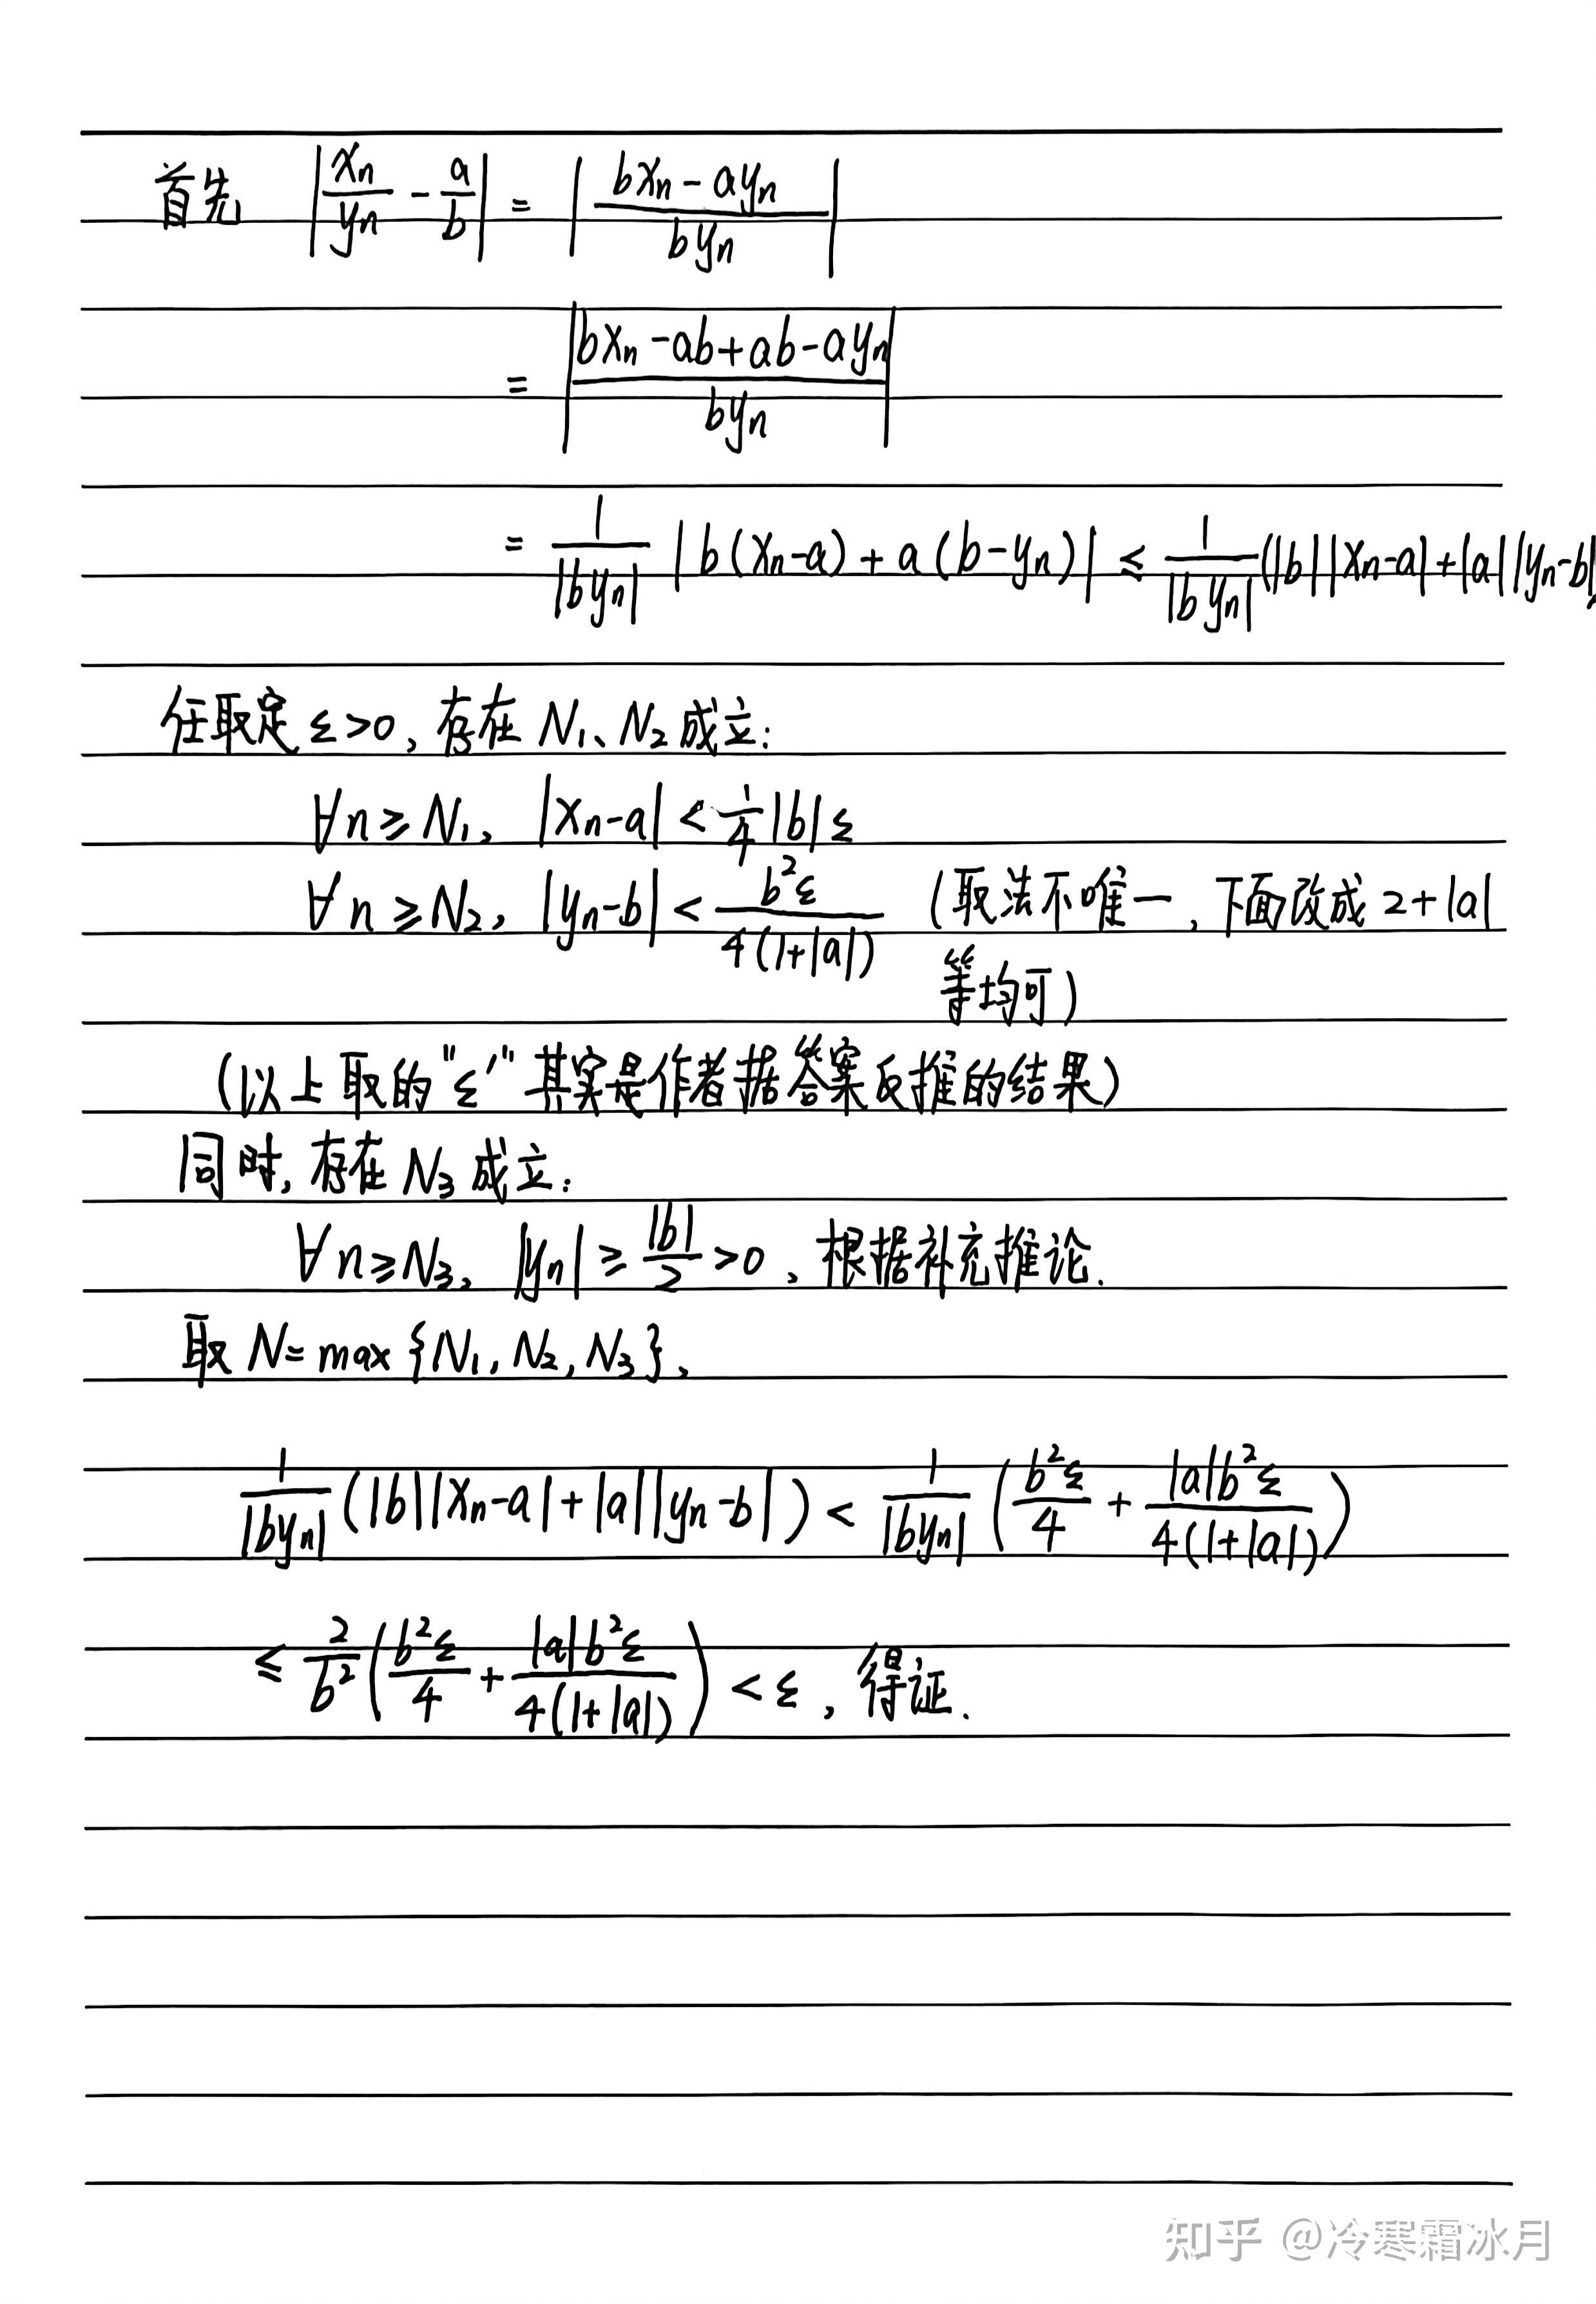 首先 |xₙ/yₙ - a/b| = |(bxₙ - ayₙ)/(byₙ)|
= |(bxₙ - ab + ab - ayₙ)/(byₙ)|
= 1/|byₙ| |b(xₙ-a) + a(b-yₙ)| ≤ 1/|byₙ| (|b||xₙ-a| + |a||yₙ-b|
任取定 ε>0, 存在 N₁、N₂ 成立:
∀n≥N₁, |xₙ-a| < 1/4 |b|ε
∀n≥N₂, |yₙ-b| < b²ε/(4(1+|a|)) (取法不唯一, 下面改成 2+|a|
等均可)
(以上取的"ε'"其实是作者据答案反推的结果)
同时, 存在 N₃ 成立:
∀n≥N₃, |yₙ| ≥ |b|/2 >0, 根据补充推论.
取 N = max{N₁, N₂, N₃},
1/|byₙ| (|b||xₙ-a| + |a||yₙ-b|) < 1/|byₙ| (b²ε/4 + |a|b²ε/(4(1+|a|)))
≤ 2/b² (b²ε/4 + |a|b²ε/(4(1+|a|))) < ε, 得证.
知乎 @冷寒霜冰月